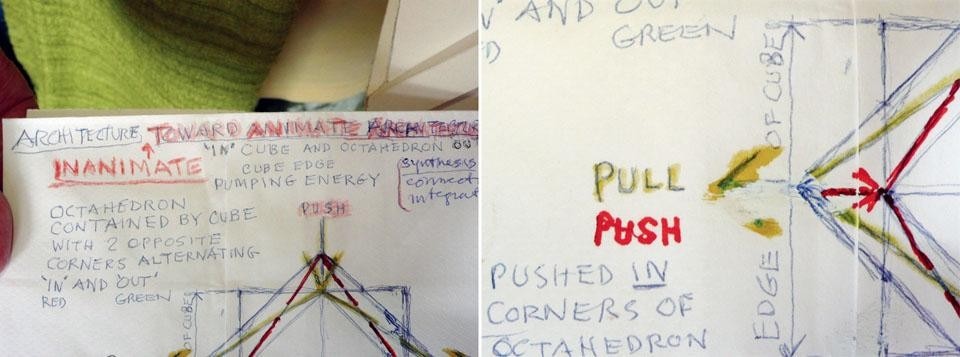 ARCHITECTURE TOWARD ANIMATE ARCHITECTU
INANIMATE
"IN" CUBE AND OCTAHEDRON OUT
CUBE EDGE
PUMPING ENERGY
synthesis
connect
integrat
PUSH
OCTAHEDRON
CONTAINED BY CUBE
WITH 2 OPPOSITE
CORNERS ALTERNATING
"IN" AND "OUT"
RED GREEN
OF CUBE
V" AND OUT
D GREEN
OF CUBE
PULL
PUSH
EDGE
PUSHED IN
CORNERS OF
OCTAHEDRON